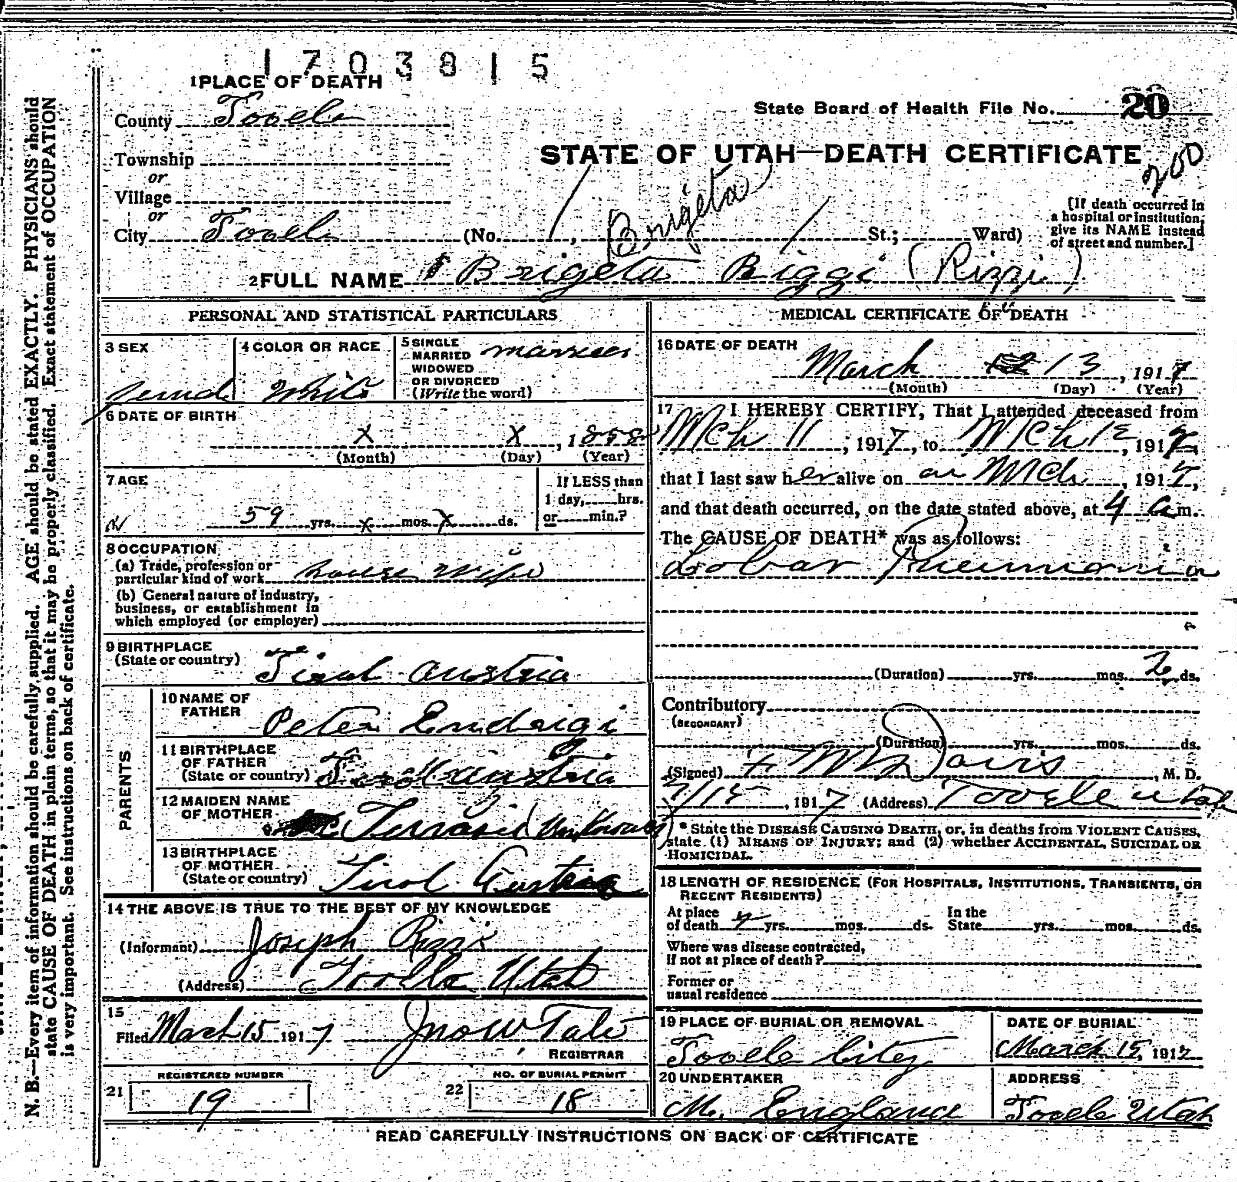 1703815
1 PLACE OF DEATH
County Tooele
State Board of Health File No. 20
STATE OF UTAH—DEATH CERTIFICATE
200
Township
or
Village
or
City Tooele (No. , St.; Ward)
[If death occurred in
a hospital or institution,
give its NAME instead
of street and number.]
Brigeta
2 FULL NAME Brigeta Riggi (Rizzi)
PERSONAL AND STATISTICAL PARTICULARS
3 SEX
4 COLOR OR RACE White
5 SINGLE
MARRIED
WIDOWED
OR DIVORCED
(Write the word)
married
6 DATE OF BIRTH
X X , 1858
(Month) (Day) (Year)
7 AGE
59 yrs. x mos. x ds.
If LESS than
1 day, hrs.
or min.?
8 OCCUPATION
(a) Trade, profession or
particular kind of work house wife
(b) General nature of industry,
business, or establishment in
which employed (or employer)
9 BIRTHPLACE
(State or country) Tirol Austria
PARENTS
10 NAME OF
FATHER Peter
11 BIRTHPLACE
OF FATHER
(State or country) Austria
12 MAIDEN NAME
OF MOTHER Unknown
13 BIRTHPLACE
OF MOTHER
(State or country) Tirol Austria
14 THE ABOVE IS TRUE TO THE BEST OF MY KNOWLEDGE
(Informant) Joseph Rizzi
(Address) Tooele Utah
15
Filed March 15 1917 Jno W Tate
REGISTRAR
REGISTERED NUMBER
21 19
NO. OF BURIAL PERMIT
22 18
MEDICAL CERTIFICATE OF DEATH
16 DATE OF DEATH
March 13, 1917
(Month) (Day) (Year)
17 I HEREBY CERTIFY, That I attended deceased from
Mch 11, 1917, to Mch 12, 1917
that I last saw her alive on Mch, 1917,
and that death occurred, on the date stated above, at 4 a m.
The CAUSE OF DEATH* was as follows:
Lobar Pneumonia
(Duration) yrs. mos. 2 ds.
Contributory
(SECONDARY)
(Duration) yrs. mos. ds.
(Signed) F. M. Davis, M. D.
3/15, 1917 (Address) Tooele Utah
* State the DISEASE CAUSING DEATH, or, in deaths from VIOLENT CAUSES,
state (1) MEANS OF INJURY; and (2) whether ACCIDENTAL, SUICIDAL OR
HOMICIDAL.
18 LENGTH OF RESIDENCE (FOR HOSPITALS, INSTITUTIONS, TRANSIENTS, OR
RECENT RESIDENTS)
At place
of death yrs. mos. ds.
In the
State yrs. mos. ds.
Where was disease contracted,
If not at place of death?
Former or
usual residence
19 PLACE OF BURIAL OR REMOVAL
Tooele City
DATE OF BURIAL
March 15, 1917
20 UNDERTAKER
M. England
ADDRESS
Tooele Utah
READ CAREFULLY INSTRUCTIONS ON BACK OF CERTIFICATE
N. B.—Every item of information should be carefully supplied. AGE should be stated EXACTLY. PHYSICIANS should
state CAUSE OF DEATH in plain terms, so that it may be properly classified. Exact statement of OCCUPATION
is very important. See instructions on back of certificate.